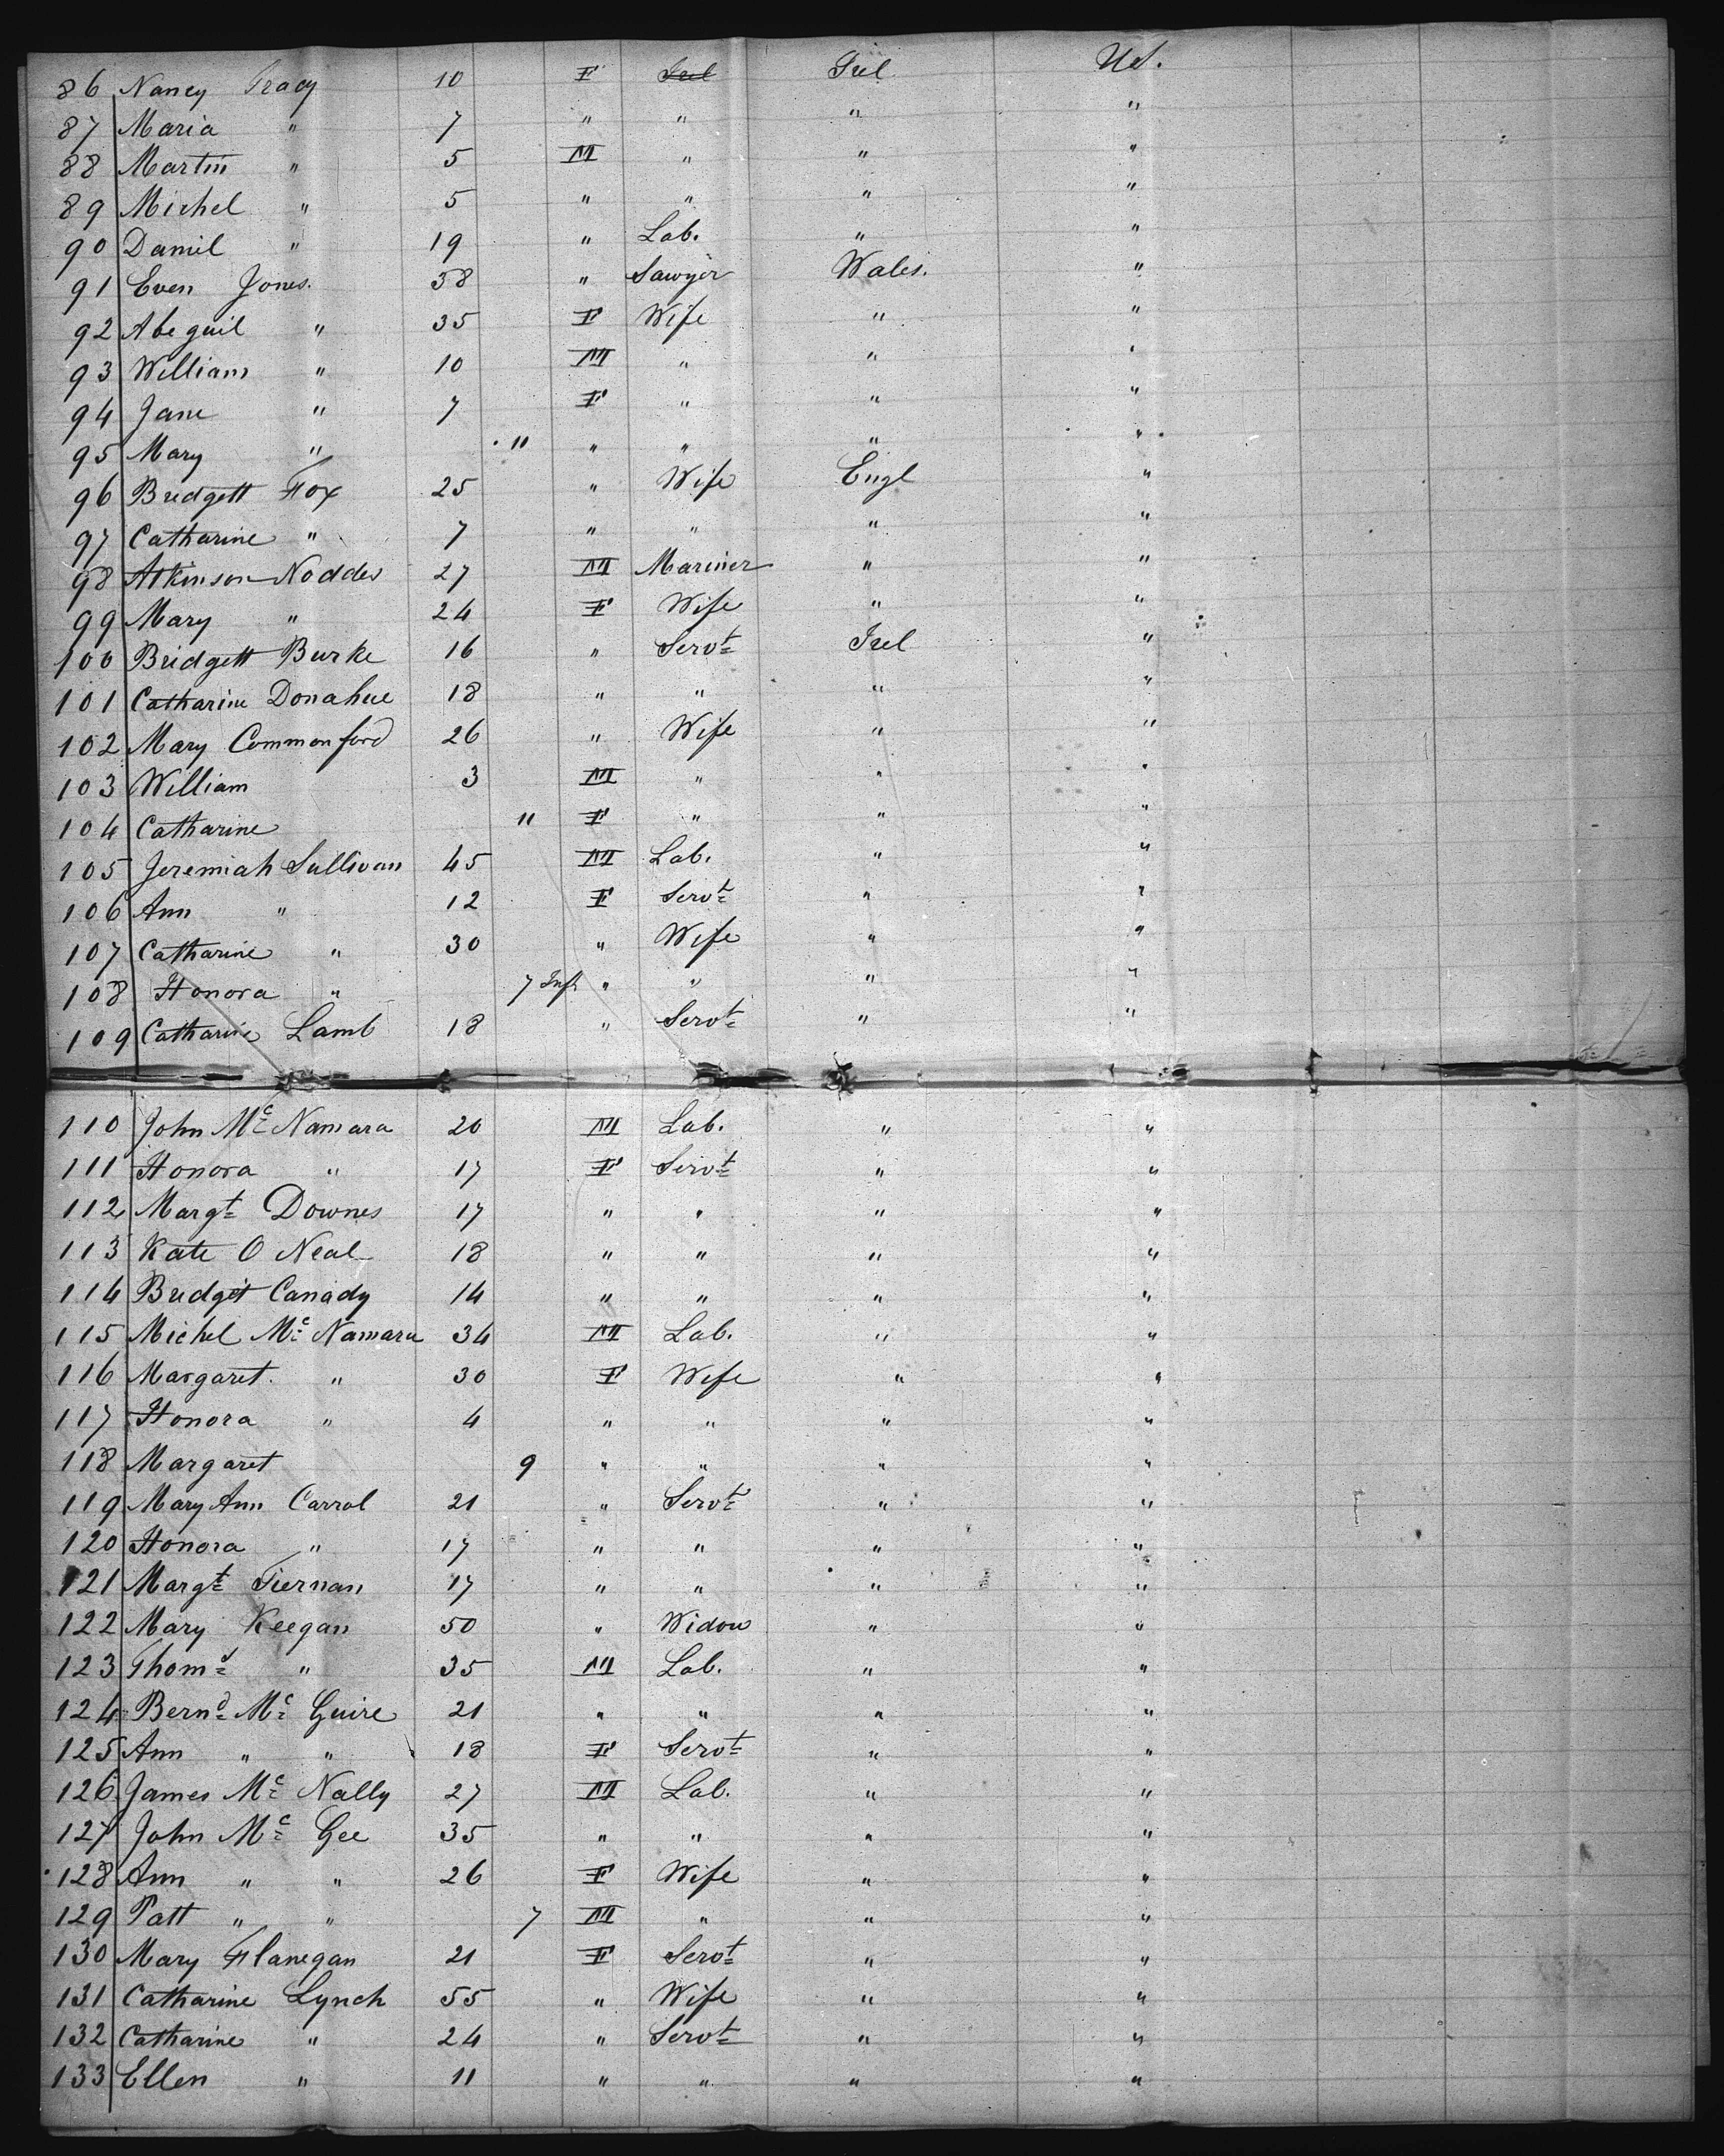 86 Nancy Tracy 10 F Irel Irel US.
87 Maria " 7 " " " "
88 Martin " 5 M " " "
89 Michel " 5 " " " "
90 Daniel " 19 " Lab. " "
91 Even Jones. 38 " Sawyer Wales. "
92 Abeguil " 35 F Wife " "
93 William " 10 M " " "
94 Jane " 7 F " " "
95 Mary " 11 " " " "
96 Bridgett Fox 25 " Wife Engl "
97 Catharine " 7 " " " "
98 Atkinson Noddes 27 M Mariner " "
99 Mary " 24 F Wife " "
100 Bridgett Burke 16 " Servt Irel "
101 Catharine Donahue 18 " " " "
102 Mary Commonford 26 " Wife " "
103 William 3 M " " "
104 Catharine 11 F " " "
105 Jeremiah Sullivan 45 M Lab. " "
106 Ann " 12 F Servt " "
107 Catharine " 30 " Wife " "
108 Honora " 7 Inf. " " " "
109 Catharine Lamb 18 " Servt " "
110 John Mc Namara 20 M Lab. " "
111 Honora " 17 F Servt " "
112 Margt Downes 17 " " " "
113 Kate O Neal 18 " " " "
114 Bridget Canady 14 " " " "
115 Michel Mc Namara 34 M Lab. " "
116 Margaret. " 30 F Wife " "
117 Honora " 4 " " " "
118 Margaret 9 " " " "
119 Mary Ann Carrol 21 " Servt " "
120 Honora " 17 " " " "
121 Margt Tiernan 17 " " " "
122 Mary Keegan 50 " Widow " "
123 Thoms " 35 M Lab. " "
124 Bernd Mc Guire 21 " " " "
125 Ann " " 18 F Servt " "
126 James Mc Nally 27 M Lab. " "
127 John Mc Gee 35 " " " "
128 Ann " " 26 F Wife " "
129 Patt " " 7 M " " "
130 Mary Flanegan 21 F Servt " "
131 Catharine Lynch 55 " Wife " "
132 Catharine " 24 " Servt " "
133 Ellen " 11 " " " "